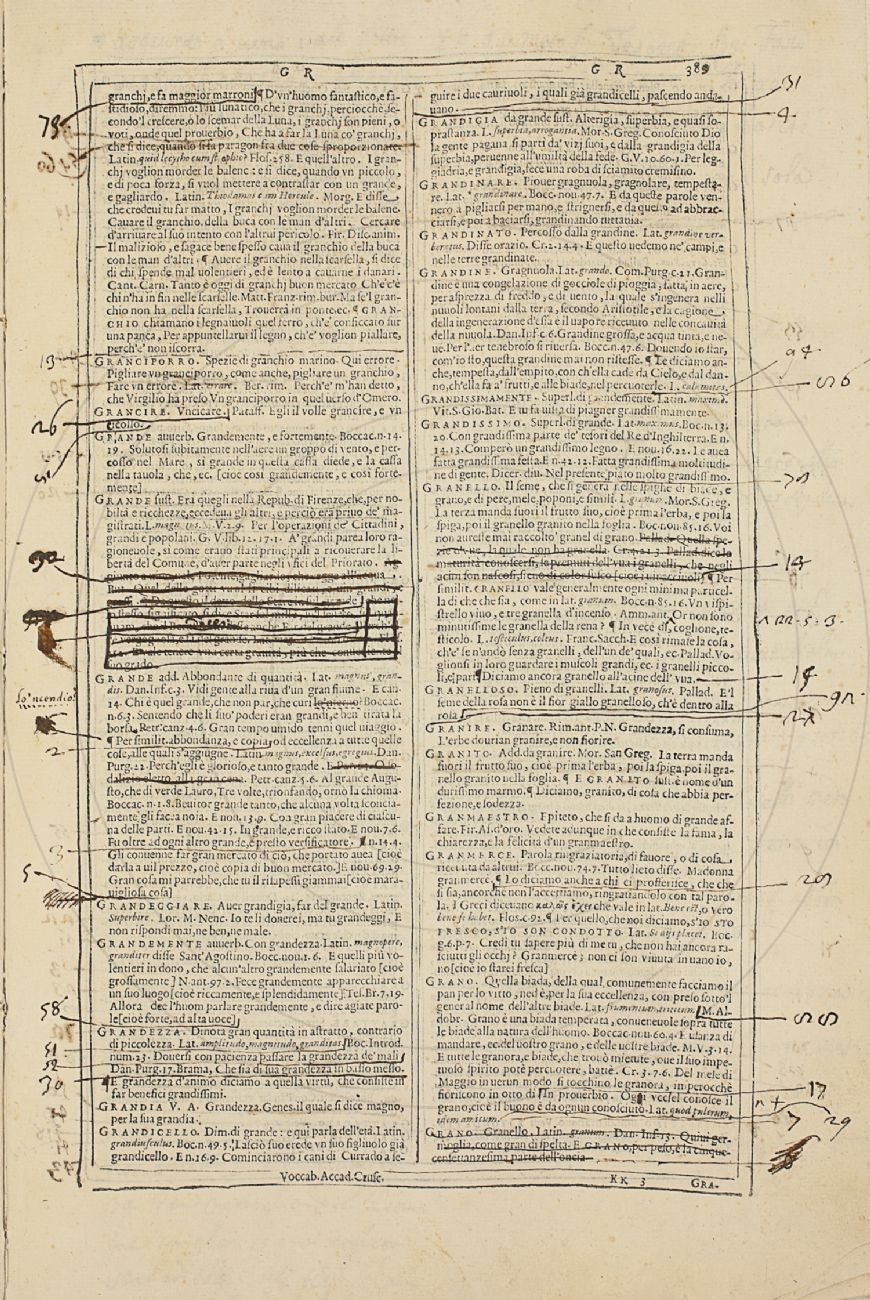 G R
G R 389
granchj, e fa maggior marroni¶ D'vn'huomo fantastico, e fa-
stidioso, diremmo: Più lunatico, che i granchj, perciocchè se-
condo'l crescere, o lo scemar della Luna, i granchj son pieni, o
voti, onde quel prouerbio, Che ha a far la Luna co' granchj,
che si dice, quando si fa paragon fra due cose sproporzionate.
Latin. Flos. 258. E quell'altro. I gran-
chj voglion morder le balene: e si dice, quando vn piccolo,
e di poca forza, si vuol mettere a contrastar con un grande,
e gagliardo. Latin. Morg. E disse,
che credeui tu far matto, I granchj voglion morder le balene.
Cauare il granchio della buca con le man d'altri. Cercare
d'arriuare al suo intento con l'altrui pericolo. Fir. Disc. anim.
Il malizioso, e sagace bene spesso caua il granchio della buca
con le man d'altri. ¶ Auere il granchio nella scarsella, si dice
di chi spende mal uolentieri, ed è lento a cauarne i danari.
Cant. Carn. Tanto è oggi di granchj buon mercato Ch'e' c'è
chi n'ha in fin nelle scarselle. Matt. Franz. rim. bur. Ma se'l gran-
chio non ha nella scarsella, Trouerrà in ponte ec. ¶ GRAN-
CHIO chiamano i legnaiuoli quel ferro, ch'e' conficcato sur
una panca, Per appuntellarui il legno, ch'e' voglion piallare,
perch'e' non iscorra.
GRANCIPORRO. Spezie di granchio marino. Qui errore.
Pigliare vn granciporro, come anche, pigliare un granchio,
Fare vn errore. Lat. errare. Ber. rim. Perch'e' m'han detto,
che Virgilio ha preso Vn granciporro in quel uerso d'Omero.
GRANCIRE. Vncicare. Pataff. Egli il volle grancire, e vn
ticollo.
GRANDE auuerb. Grandemente, e fortemente. Boccac. n. 14.
19. Solutosi subitamente nell'aere un groppo di vento, e per-
cosso nel Mare, si grande in questa cassa diede, e la cassa
nella tauola, che, ec. [cioè così grandemente, e così forte-
mente]
GRANDE sust. Era quegli nella Repub. di Firenze, che, per no-
biltà e ricchezze, eccedeua gli altri, e perciò era priuo de' ma-
gistrati. L. magnatus. M. V. 2. 9. Per l'operazioni de' Cittadini,
grandi e popolani. G. V. lib. 12. 17. 1. A' grandi parea loro ra-
gioneuole, si come erano stati principali a ricouerare la li-
bertà del Comune, d'auer parte negli vfici del Priorato.
GRANDE add. Abbondante di quantità. Lat. magnus, gran-
dis. Dan. Inf. c. 3. Vidi gente alla riua d'un gran fiume. E can.
14. Chi è quel grande, che non par, che curi Boccac.
n. 6. 3. Sentendo che li suo' poderi eran grandi, e ben tirata la
borsa. Petr. canz. 4. 6. Gran tempo umido tenni quel uiaggio.
¶ Per similit. abbondanza, e copia, o d'eccellenza a tutte quelle
cose, alle quali s'aggiugne. Latin. magnus, excelsus, egregius. Dan.
Purg. 22. Perch'egli è glorioso, e tanto grande.
Petr. canz. 5. 6. Al grande Augu-
sto, che di verde Lauro, Tre volte, trionfando, ornò la chioma.
Boccac. n. 1. 8. Beuitor grande tanto, che alcuna volta sconcia-
mente gli facea noia. E nou. 13. 9. Con gran piacere di ciascu-
na delle parti. E nou. 42. 15. In grande, e ricco stato. E nou. 7. 6.
Fu oltre ad ogni altro grande, e presto versificatore. n. 14. 4.
Gli conuenne far gran mercato di ciò, che portato auea [cioè
darla a uil prezzo, cioè copia di buon mercato.] E nou. 69. 29.
Gran cosa mi parrebbe, che tu il risapessi giammai [cioè mara-
uigliosa cosa]
GRANDEGGIARE. Auer grandigia, far del grande. Latin.
Superbire. Lor. M. Nenc. Io te li donerei, ma tu grandeggi, E
non rispondi mai, ne ben, ne male.
GRANDEMENTE auuerb. Con grandezza. Latin. magnopere,
granditer disse Sant'Agostino. Bocc. nou. 1. 6. E quelli più vo-
lentieri in dono, che alcun'altro grandemente salariato [cioè
grossamente] N. ant. 97. 2. Fece grandemente apparecchiare a
un suo luogo [cioè riccamente, e splendidamente] Tes. Br. 7. 19.
Allora dee l'huom parlare grandemente, e dire agiate paro-
le [cioè forte, ad alta uoce]
GRANDEZZA. Dinota gran quantità in astratto, contrario
di piccolezza. Lat. amplitudo, magnitudo, granditas. Boc. Introd.
num. 23. Douersi con pacienza passare la grandezza de' mali
Dan. Purg. 17. Brama, Che sia di sua grandezza in basso messo.
¶ E grandezza d'animo diciamo a quella virtù, che consiste in
far benefici grandissimi.
GRANDIA V. A. Grandezza. Genes. il quale si dice magno,
per la sua grandia.
GRANDICELLO. Dim. di grande: e qui parla dell'età. Latin.
grandiusculus. Boc. n. 49. 5. Lasciò suo erede vn suo figliuolo già
grandicello. E n. 16. 9. Cominciarono i cani di Currado a se-
guire i due cauriuoli, i quali già grandicelli, pascendo anda-
uano.
GRANDIGIA da grande sust. Alterigia, superbia, e quasi so-
prastanza. L. superbia, arrogantia. Mor. S. Greg. Conosciuto Dio
la gente pagana si partì da' vizj suoi, e dalla grandigia della
superbia, peruenne all'umiltà della fede. G. V. 10. 60. 1. Per leg-
giadria, e grandigia, fece una roba di sciamito cremisino.
GRANDINARE. Piouer gragnuola, gragnolare, tempesta-
re. Lat. grandinare. Bocc. nou. 47. 7. E da queste parole ven-
nero a pigliarsi per mano, e strignersi, e da questo ad abbrac-
ciarsi, e poi a baciarsi, grandinando tuttauia.
GRANDINATO. Percosso dalla grandine. Lat. grandine ver-
beratus. Disse orazio. Cr. 2. 14. 4. E questo uedemo ne' campi, e
nelle terre grandinate.
GRANDINE. Gragnuola. Lat. grando. Com. Purg. c. 21. Gran-
dine è una congelazione di gocciole di pioggia, fatta, in aere,
per asprezza di freddo, e di uento, la quale s'ingenera nelli
nuuoli lontani dalla terra, secondo Aristotile, e la cagione
della ingenerazione d'essa è il uapore riceuuto nelle concauità
della nuuola. Dan. Inf. c. 6. Grandine grossa, e acqua tinta, e ne-
ue. Per l'aer tenebroso si riuersa. Bocc. n. 47. 6. Douendo io star,
com'io sto, questa grandine mai non ristesse. ¶ Le diciamo an-
che, tempesta, dall'empito, con ch'ella cade da Cielo, e dal dan-
no, ch'ella fa a' frutti, e alle biade, nel percuoterle. L. calamitas.
GRANDISSIMAMENTE. Superl. di grandemente. Latin. maxime.
Vit. S. Gio. Bat. E tu fa uista di piagner grandissimamente.
GRANDISSIMO. Superl. di grande. Lat. maximus. Boc. n. 13.
20. Con grandissima parte de' tesori del Re d'Inghilterra. E n.
14. 13. Comperò un grandissimo legno. E nou. 16. 22. Le auea
fatta grandissima festa. E n. 42. 12. Fatta grandissima moltitudi-
ne di gente. Dicer. diu. Nel presente piato molto grandissimo.
GRANELLO. Il seme, che si genera nelle spighe di biade, e
grano, e di pere, mele, poponi, e simili. L. granum. Mor. S. Greg.
La terza manda fuori il frutto suo, cioè prima l'erba, e poi la
spiga, poi il granello granito nella foglia. Boc. nou. 85. 16. Voi
non aureste mai raccolto granel di grano. Pallad. Quella spe-
zie d'vue, la quale non ha granella. Cr. 4. 21. 3. Pallad. dice la
maturità conoscersi, se premuti dell'vua i granelli, che negli
acini son nascosi, sieno di color fosco [cioè i uacciuoli] ¶ Per
similit. GRANELLO vale generalmente ogni minima particel-
la di che che sia, come in lat. granum. Bocc. n. 85. 16. Vn vispi-
strello viuo, e tre granella d'incenso. Amm. ant. Or non sono
minutissime le granella della rena? ¶ In vece di, coglione, te-
sticolo. L. testiculus, coleus. Franc. Sacch. E così rimase la cosa,
ch'e' se n'andò senza granelli, dell'un de' quali, ec. Pallad. Vo-
glionsi in loro guardare i muscoli grandi, ec. i granelli picco-
li, e pari ¶ Diciamo ancora granello all'acine dell'vua.
GRANELLOSO. Pieno di granelli. Lat. granosus. Pallad. E'l
seme della rosa non è il fior giallo granelloso, ch'è dentro alla
rosa
GRANIRE. Granare. Rim. ant. P. N. Grandezza, si consuma,
L'erbe dourian granire, e non fiorire.
GRANITO. Add. da granire. Mor. San Greg. La terra manda
fuori il frutto suo, cioè prima l'erba, poi la spiga, poi il gra-
nello granito nella foglia. ¶ E GRANITO sust. è nome d'un
durissimo marmo. ¶ Diciamo, granito, di cosa che abbia per-
fezione, e sodezza.
GRANMAESTRO. Epiteto, che si da a huomo di grande af-
fare. Fir. As. d'oro. Vedete adunque in che consiste la fama, la
chiarezza, e la felicità d'un gran maestro.
GRANMERCE. Parola ringraziatoria, di fauore, o di cosa
riceuuta da altrui. Bocc. nou. 74. 7. Tutto lieto disse. Madonna
gran mercè. ¶ Lo diciamo anche a chi ci profferisce, che che
si sia, ancorchè non l'accettiamo, ringratiandolo con tal paro-
la. I Greci diceuano καλῶς ἔχει che vale in lat. Bene est, o vero
bene se habet. Flos. c. 92. ¶ Per quello, che noi diciamo, S'IO STO
FRESCO, S'IO SON CONDOTTO. Lat. Si dijs placet. Boc.
g. 6. p. 7. Credi tu sapere più di me tu, che non hai ancora ra-
sciutti gli occhj? Granmercè; non ci son viuuta in uano io,
no [cioè io starei fresca]
GRANO. Quella biada, della qual comunemente facciamo il
pan per lo vitto, ned è, per la sua eccellenza, con preso sotto'l
general nome dell'altre biade. Lat. frumentum, triticum. M. Al-
dobr. Grano è una biada temperata, conueneuole sopra tutte
le biade alla natura dell'huomo. Boccac. nou. 60. 4. E usanza di
mandare, ec. del uostro grano, e delle uostre biade. M. V. 3. 14.
E tutte le granora, e biade, che trouò mietute, oue il suo impe-
tuoso spirito potè percuotere, battè. Cr. 3. 7. 6. Del mese di
Maggio in uerun modo si tocchino le granora, imperocchè
fioriscono in otto dì In prouerbio. Ogni uccel conosce il
grano, cioè il buono è da ognun conosciuto. Lat. quod pulcrum,
idem amicum.
GRANO. Granello. Latin. granum. Dan. Inf. 13. Quiui ger-
moglia, come gran di spelta. E GRANO, per peso, è la cinque-
censettantesima parte dell'oncia.
Voccab. Accad. Crusc.
KK 3 GRA-
79
13
26
51
lo'ncendio
2
3
5
58
51
52
30
31
4
26
14
14
27
20
17
7 29